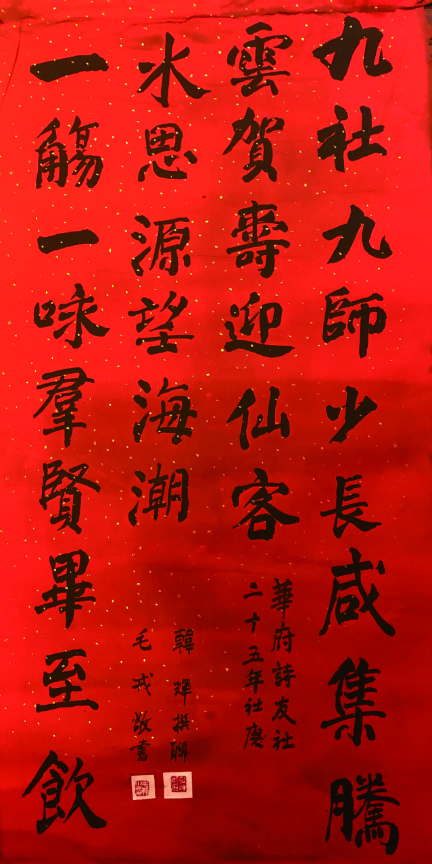 九社九師少長咸集騰
雲賀壽迎仙客
華府詩友社
二十五年社慶
一觴一咏羣賢畢至飲
水思源望海潮
韓輝撰聯
毛戎敬書